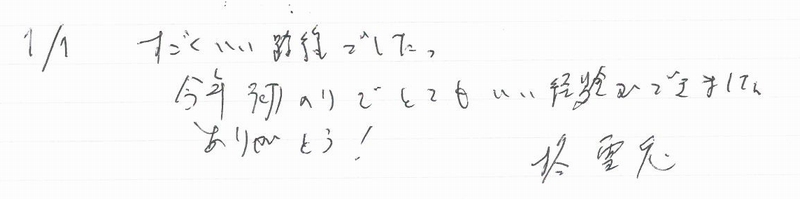 1/1 すごくいい路線でした。
今年初のりでとてもいい経験ができました
ありがとう!